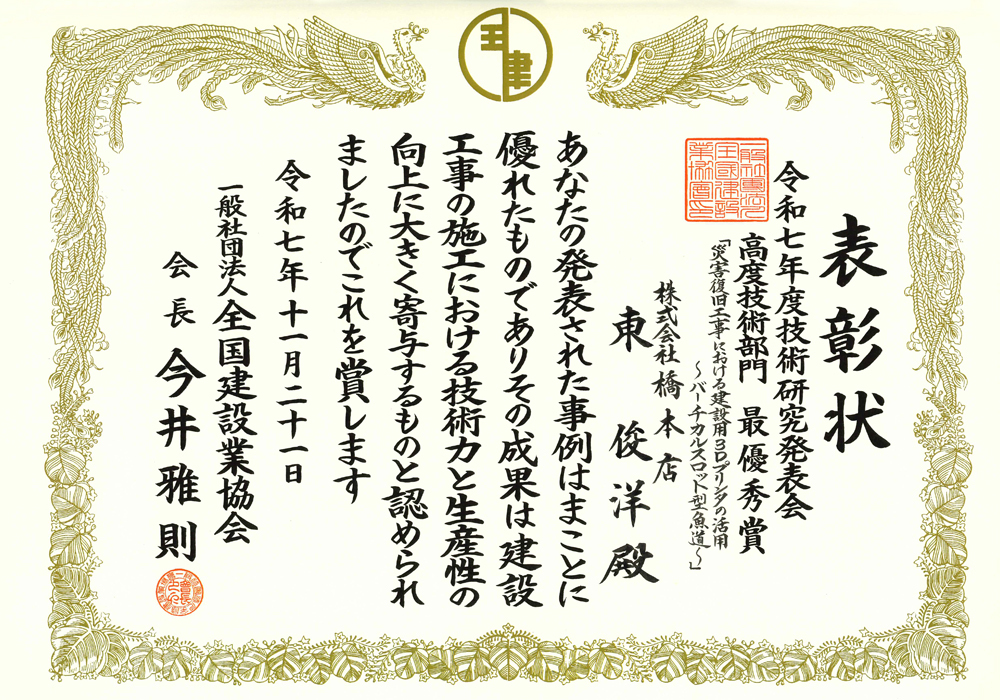 表彰状
令和七年度技術研究発表会
高度技術部門 最優秀賞
「災害復旧工事における建設用3Dプリンタの活用
～バーチカルスロット型魚道～」
株式会社 橋本店
東 俊洋 殿
あなたの発表された事例はまことに
優れたものでありその成果は建設
工事の施工における技術力と生産性の
向上に大きく寄与するものと認められ
ましたのでこれを賞します
令和七年十一月二十一日
一般社団法人全国建設業協会
会長 今井雅則
一般社団法人全国建設業協会印